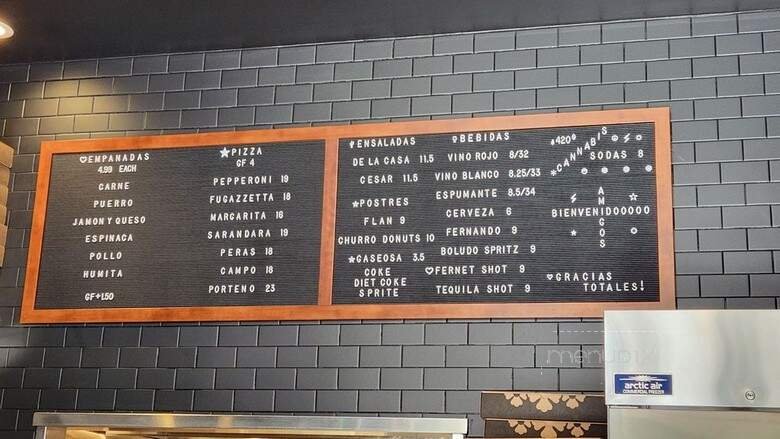 ♡EMPANADAS
4.99 EACH
CARNE
PUERRO
JAMON Y QUESO
ESPINACA
POLLO
HUMITA
GF+1.50
★PIZZA
GF 4
PEPPERONI 19
FUGAZZETTA 18
MARGARITA 16
SARANDARA 19
PERAS 18
CAMPO 18
PORTENO 23
ENSALADAS
DE LA CASA 11.5
CESAR 11.5
★POSTRES
FLAN 9
CHURRO DONUTS 10
★GASEOSA 3.5
COKE
DIET COKE
SPRITE
BEBIDAS
VINO ROJO 8/32
VINO BLANCO 8.25/33
ESPUMANTE 8.5/34
CERVEZA 6
FERNANDO 9
BOLUDO SPRITZ 9
♡FERNET SHOT 9
TEQUILA SHOT 9
420
CANNABIS
SODAS 8
AMIGOS
BIENVENIDOOOOO
♥GRACIAS
TOTALES!
arctic air
COMMERCIAL FREEZER
menupix